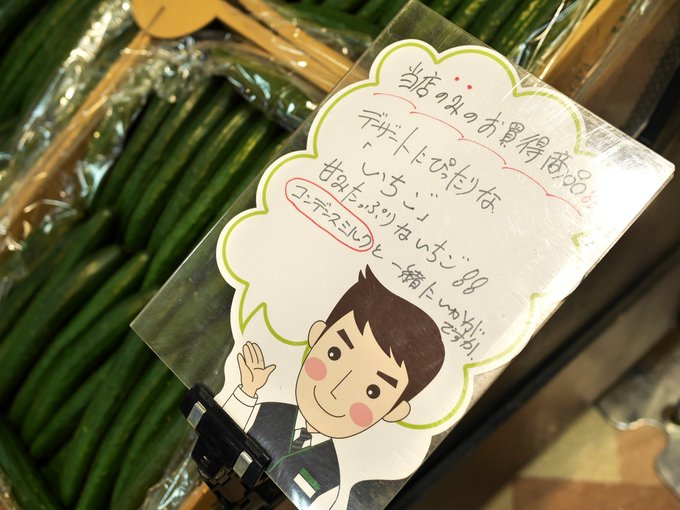 当店のみのお買得商品
デザートにぴったりな
「いちご」
甘みたっぷりないちご
コンデンスミルクと一緒にいかがですか!